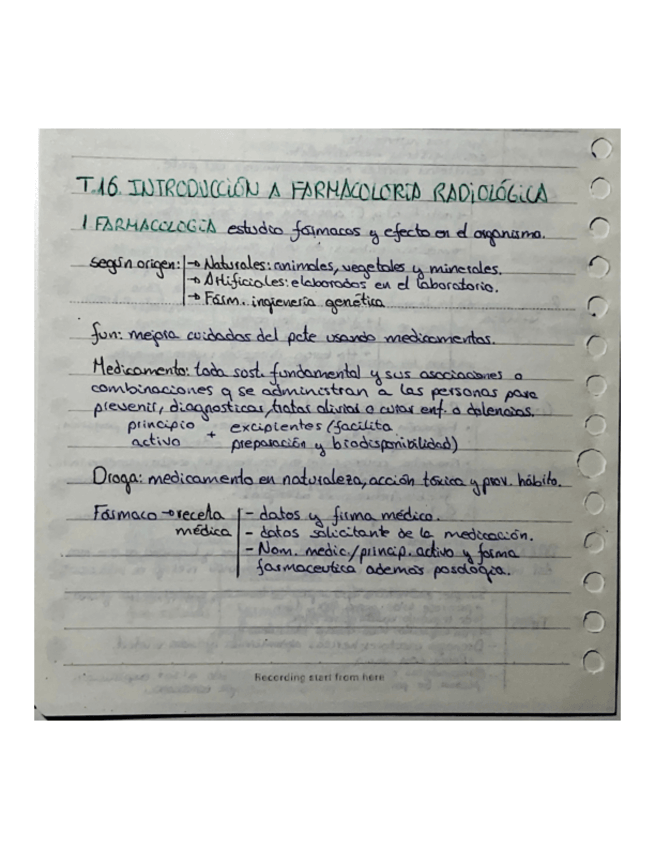 T.16. INTRODUCCIÓN A FARMACOLORIA RADIOLÓGICA
1 FARMACOLOGIA estudia fármacos y efecto en el organismo.
según origen: → Naturales: animales, vegetales y minerales.
→ Artificiales: elaborados en el laboratorio.
→ Fárm. ingieneria genética
fun: mejora cuidados del pcte usando medicamentos.
Medicamento: toda sost. fundamental y sus asociaciones o
combinaciones q se administran a las personas para
prevenir, diagnosticar, tratar aliviar o curar enf. o dolencias.
principio + excipientes (facilita
activo preparación y biodisponibilidad)
Droga: medicamento en naturaleza, acción tóxica y prov. hábito.
Fármaco → receta - datos y firma médico.
médica - datos solicitante de la medicación.
- Nom. medic./princip. activo y forma
farmaceutica ademas posología.
Recording start from here